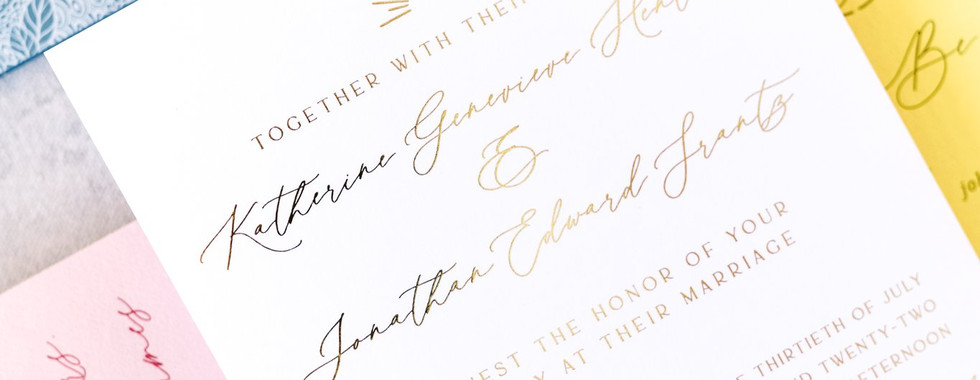 TOGETHER WITH THEIR
Katherine Genevieve
&
Jonathan Edward Frantz
THE HONOR OF YOUR
AT THEIR MARRIAGE
THIRTIETH OF JULY
TWENTY-TWO
Be